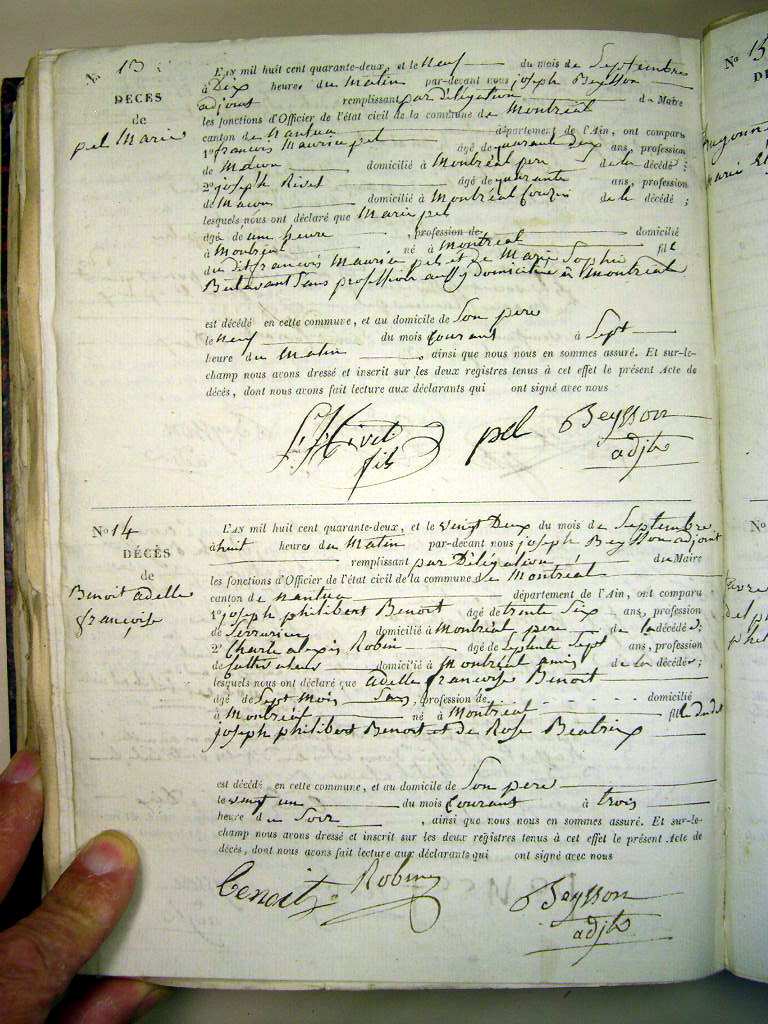 No 13
DÉCÈS
de
pel Marie
L'AN mil huit cent quarante-deux, et le neuf du mois de Septembre
à Dix heures du Matin par-devant nous joseph Beysson
adjoint remplissant par délégation du Maire
les fonctions d'Officier de l'état civil de la commune de Montréal
canton de Nantua département de l'Ain, ont comparu
1o françois Maurice pel âgé de quarante deux ans, profession
de Maçon domicilié à Montréal pere de la décédé ;
2o joseph Rivet âgé de quarante ans, profession
de Maçon domicilié à Montréal Couzin de la décédé ;
lesquels nous ont déclaré que Marie pel
âgé de une heure , profession de domicilié
à Montréal né à Montréal fille
du dit françois Maurice pel et de Marie Sophie
Sans profession aussy domiciliée à Montréal
est décédé en cette commune, et au domicile de Son pere
le neuf du mois Courant à Sept
heure du Matin , ainsi que nous nous en sommes assuré. Et sur-le-
champ nous avons dressé et inscrit sur les deux registres tenus à cet effet le présent Acte de
décès, dont nous avons fait lecture aux déclarants qui ont signé avec nous
Rivet pel Beysson
fils adjt
No 14
DÉCÈS
de
Benoit adelle
françoise
L'AN mil huit cent quarante-deux, et le vingt Deux du mois de Septembre
à huit heures du Matin par-devant nous joseph Beysson adjoint
remplissant par Délégation du Maire
les fonctions d'Officier de l'état civil de la commune de Montréal
canton de nantua département de l'Ain, ont comparu
1o joseph philibert Benoit âgé de trente Six ans, profession
de Serrurier domicilié à Montréal pere de la décédé ;
2o Charle alexis Robin âgé de Septante Sept ans, profession
de Cultivateur domicilié à Montréal amis de la décédé ;
lesquels nous ont déclaré que adelle françoise Benoit
âgé de Sept Mois Sans , profession de domicilié
à Montréal né à Montréal fille dudit
joseph philibert Benoit et de Rose Beatrix
est décédé en cette commune, et au domicile de Son pere
le vingt un du mois Courant à trois
heure du Soir , ainsi que nous nous en sommes assuré. Et sur-le-
champ nous avons dressé et inscrit sur les deux registres tenus à cet effet le présent Acte de
décès, dont nous avons fait lecture aux déclarants qui ont signé avec nous
benoit Robin Beysson
adjt